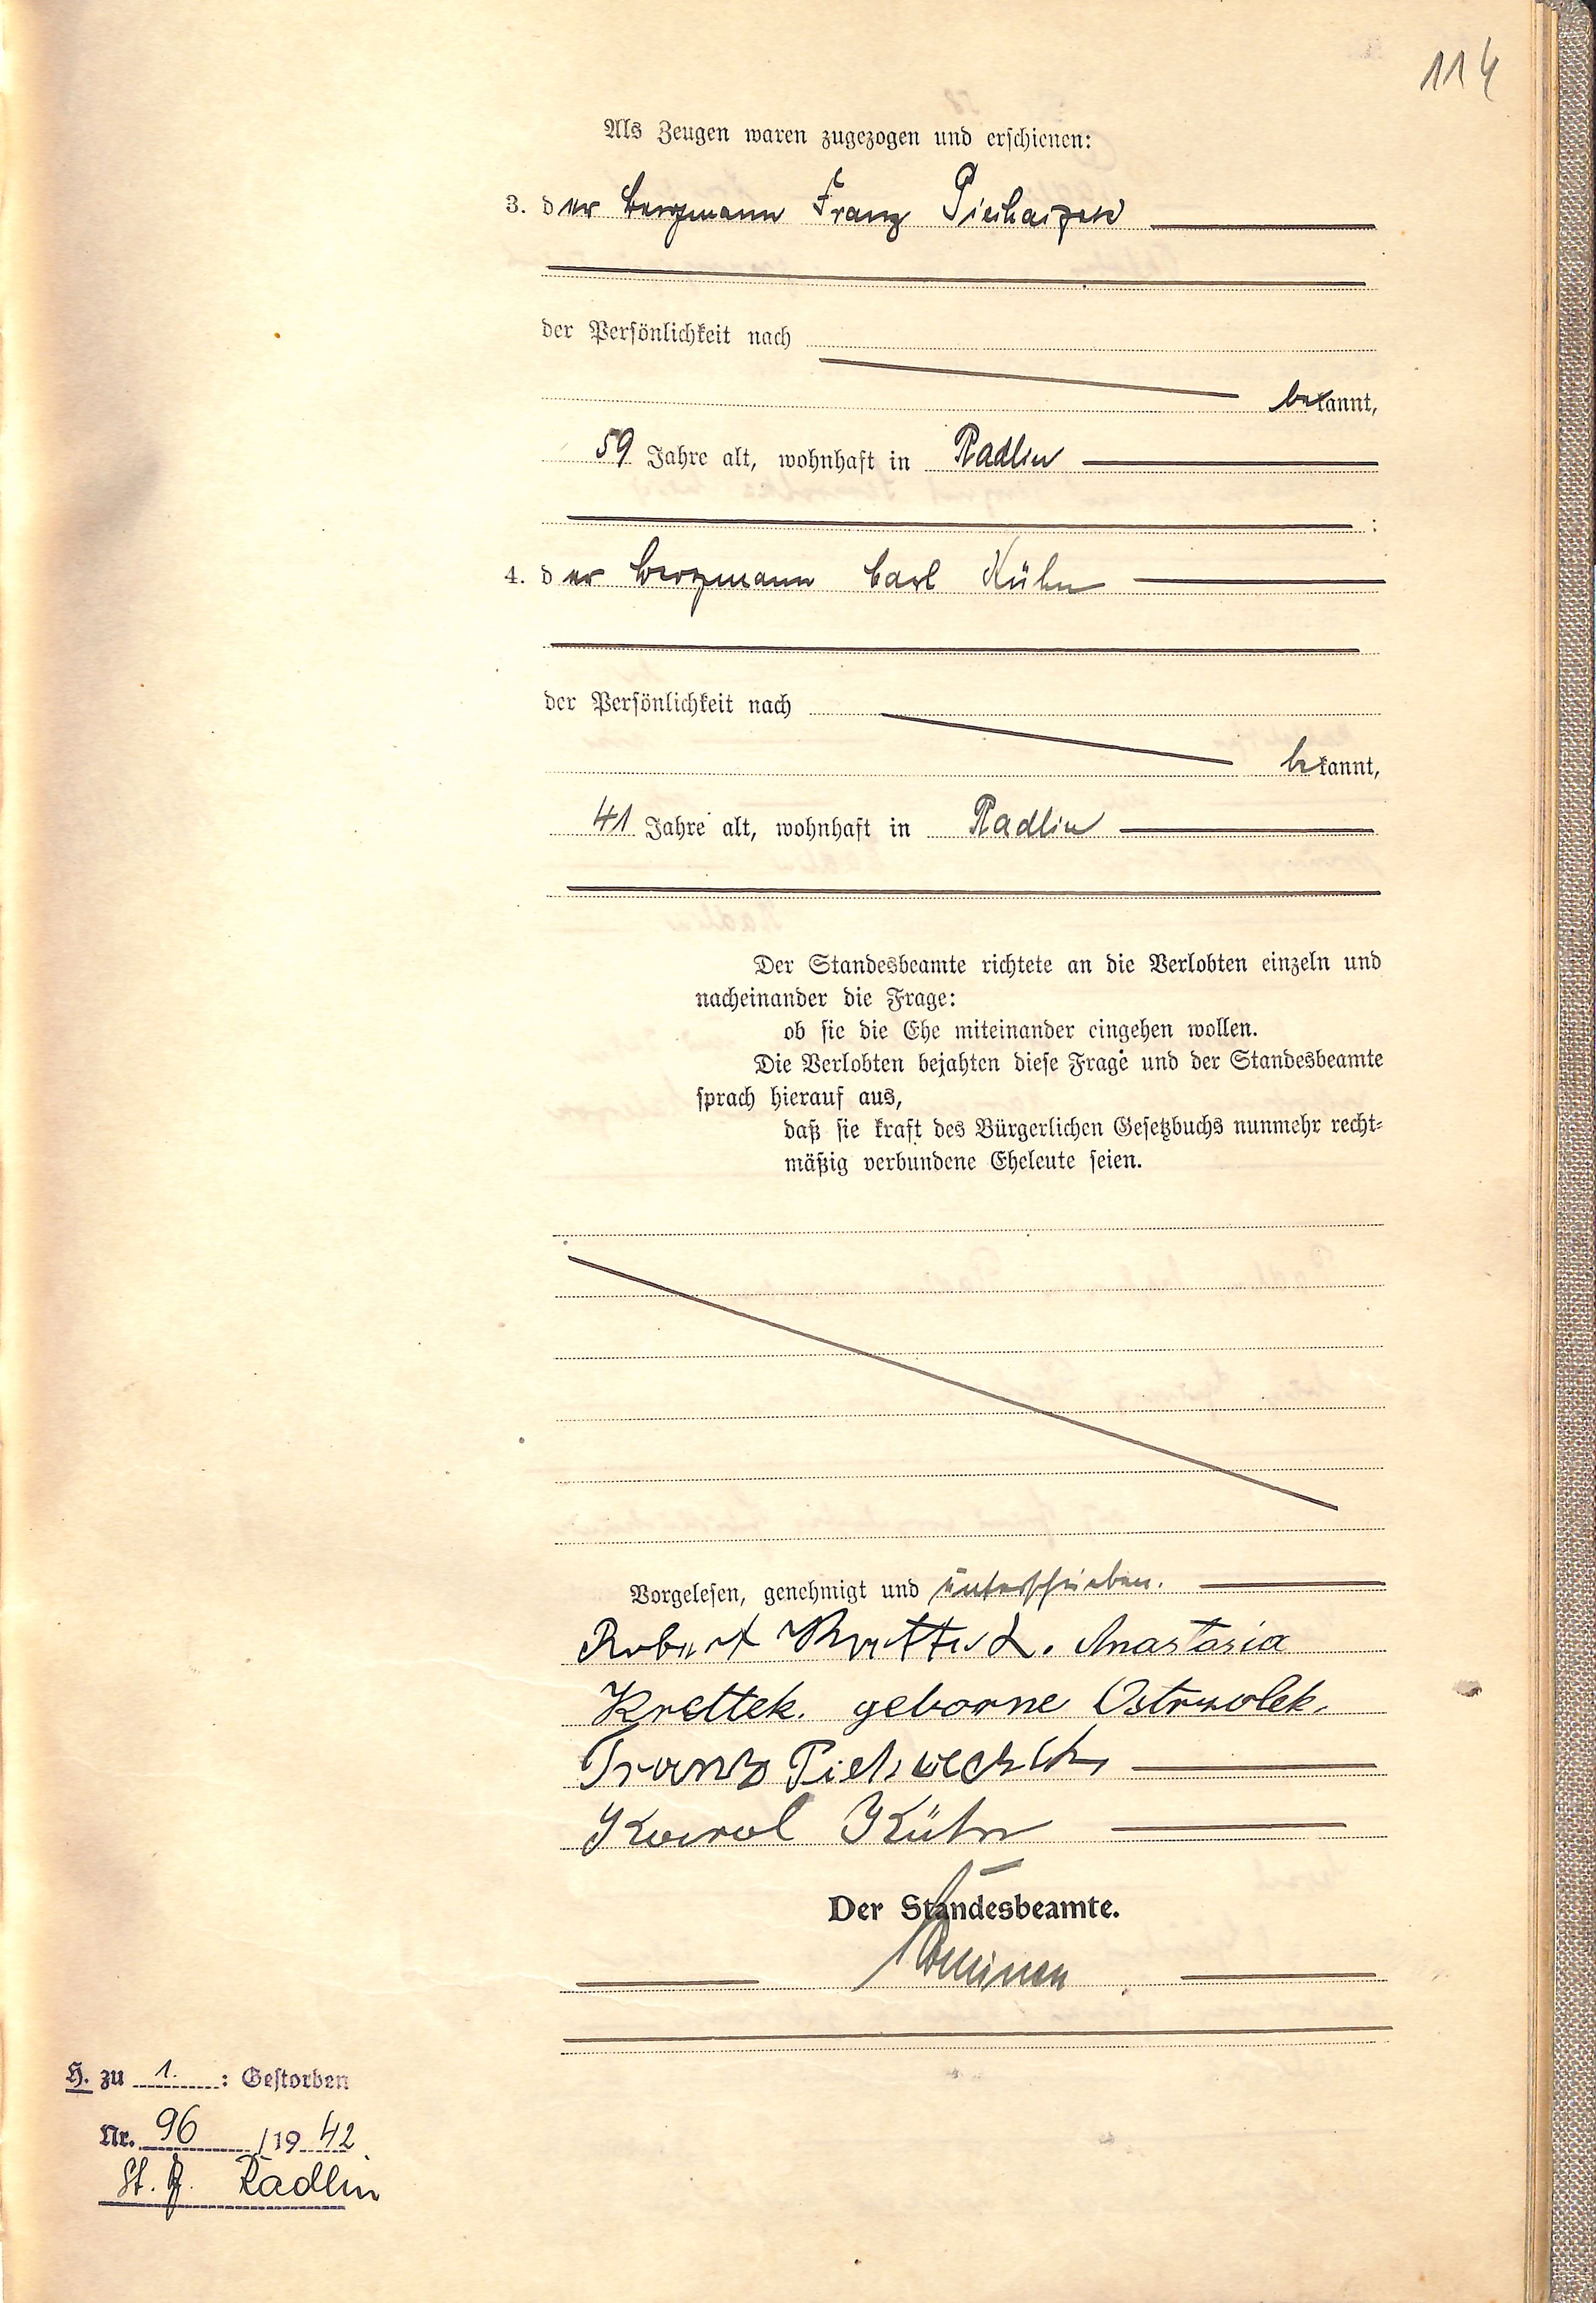 114
Als Zeugen waren zugezogen und erschienen:
3. der Bergmann Franz
der Persönlichkeit nach
bekannt,
59 Jahre alt, wohnhaft in Radlin
:
4. der Bergmann Carl Kühn
der Persönlichkeit nach
bekannt,
41 Jahre alt, wohnhaft in Radlin
Der Standesbeamte richtete an die Verlobten einzeln und
nacheinander die Frage:
ob sie die Ehe miteinander eingehen wollen.
Die Verlobten bejahten diese Frage und der Standesbeamte
sprach hierauf aus,
daß sie kraft des Bürgerlichen Gesetzbuchs nunmehr recht-
mäßig verbundene Eheleute seien.
Vorgelesen, genehmigt und unterschrieben.
Robert Krettek. Anastasia
Krettek. geborne Ostrzolek.
Franz
Karol Kühn
Der Standesbeamte.
H. zu 1. : Gestorben
Nr. 96 /1942
St. A. Radlin